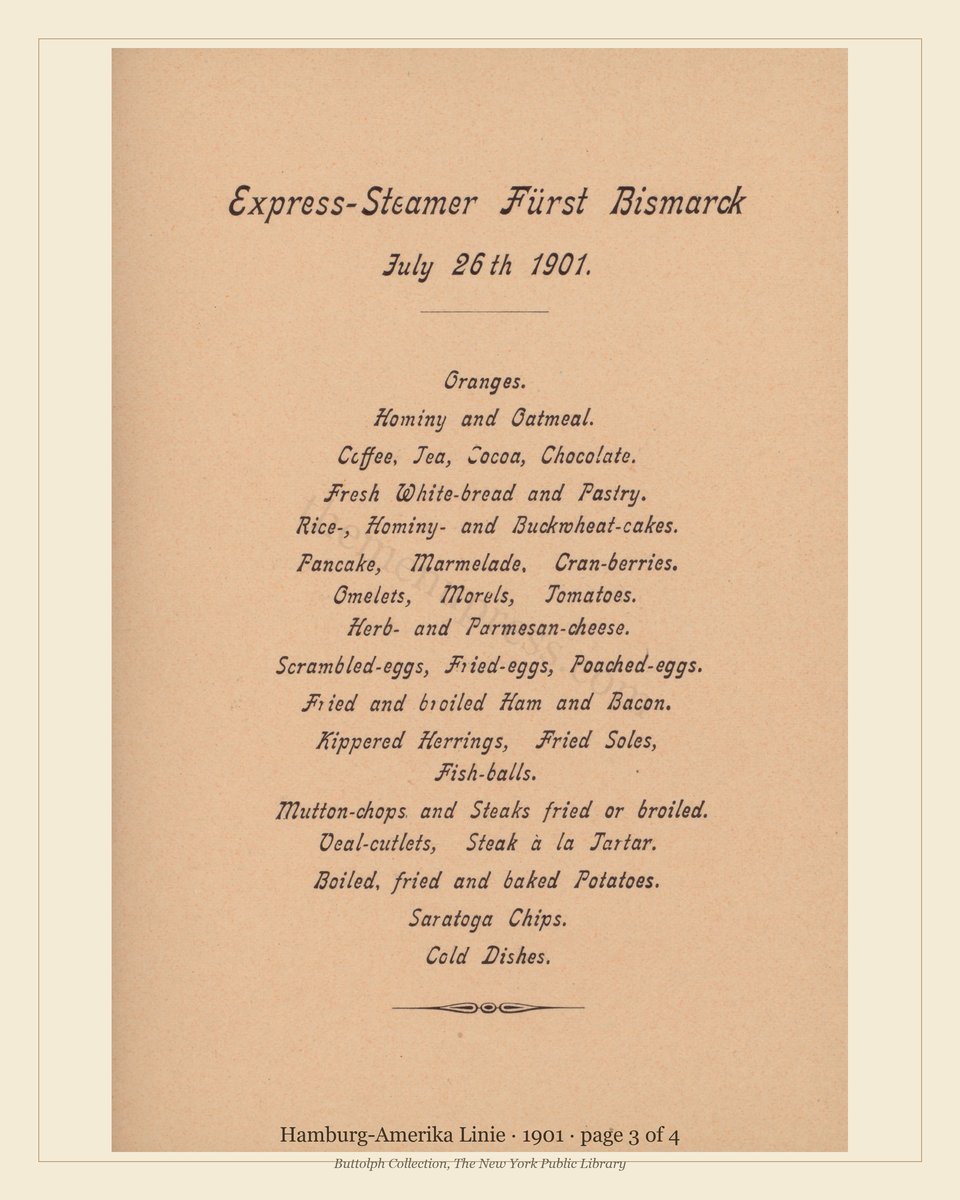 Express-Steamer Fürst Bismarck
July 26th 1901.
Oranges.
Hominy and Oatmeal.
Coffee, Tea, Cocoa, Chocolate.
Fresh White-bread and Pastry.
Rice-, Hominy- and Buckwheat-cakes.
Pancake, Marmelade, Cran-berries.
Omelets, Morels, Tomatoes.
Herb- and Parmesan-cheese.
Scrambled-eggs, Fried-eggs, Poached-eggs.
Fried and broiled Ham and Bacon.
Kippered Herrings, Fried Soles,
Fish-balls.
Mutton-chops and Steaks fried or broiled.
Veal-cutlets, Steak à la Tartar.
Boiled, fried and baked Potatoes.
Saratoga Chips.
Cold Dishes.
Hamburg-Amerika Linie · 1901 · page 3 of 4
Buttolph Collection, The New York Public Library